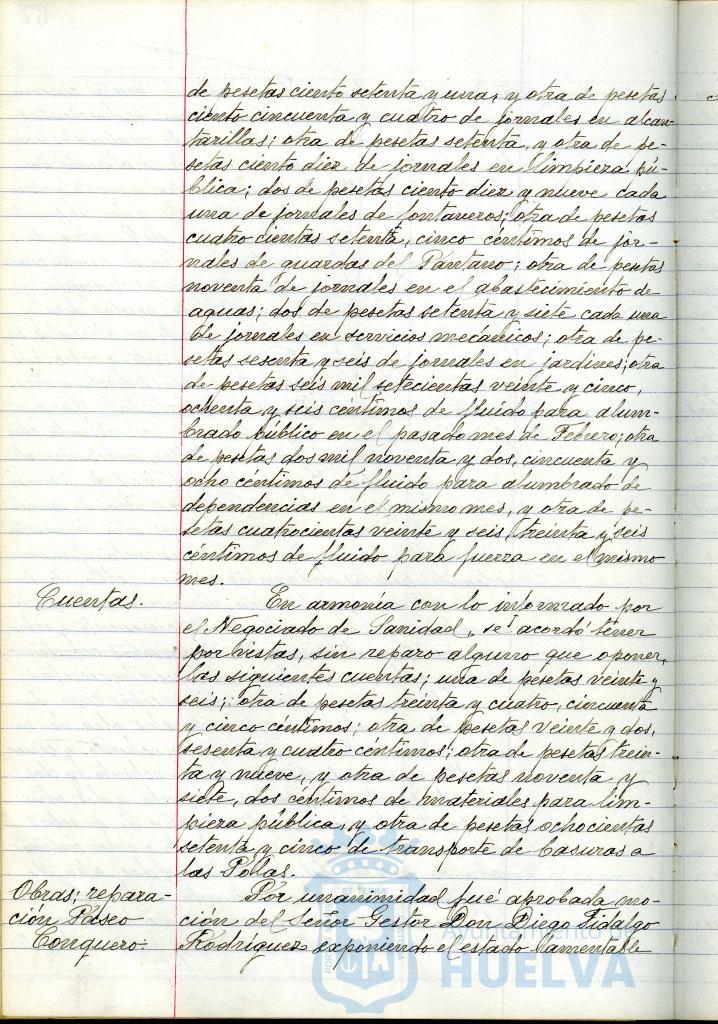 de pesetas ciento setenta y una, y otra de pesetas
ciento cincuenta y cuatro de jornales en alcan-
tarillas; otra de pesetas setenta, y otra de pe-
setas ciento diez de jornales en limpieza pú-
blica; dos de pesetas ciento diez y nueve cada
una de jornales de fontaneros; otra de pesetas
cuatrocientas setenta, cinco céntimos de jor-
nales de guardas del Pantano; otra de pesetas
noventa de jornales en el abastecimiento de
aguas; dos de pesetas setenta y siete cada una
de jornales en servicios mecánicos; otra de pe-
setas sesenta y seis de jornales en jardines; otra
de pesetas seis mil setecientas veinte y cinco,
ochenta y seis céntimos de fluido para alum-
brado público en el pasado mes de Febrero; otra
de pesetas dos mil noventa y dos, cincuenta y
ocho céntimos de fluido para alumbrado de
dependencias en el mismo mes, y otra de pe-
setas cuatrocientas veinte y seis, treinta y seis
céntimos de fluido para fuerza en el mismo
mes.
Cuentas. En armonía con lo informado por
el Negociado de Sanidad, se acordó tener
por vistas, sin reparo alguno que oponer,
las siguientes cuentas; una de pesetas veinte y
seis; otra de pesetas treinta y cuatro, cincuenta
y cinco céntimos; otra de pesetas veinte y dos,
sesenta y cuatro céntimos; otra de pesetas trein-
ta y nueve, y otra de pesetas noventa y
siete, dos céntimos de materiales para lim-
pieza pública, y otra de pesetas ochocientas
setenta y cinco de transporte de basuras a
las Pollas.
Obras; repara- Por unanimidad fué aprobada mo-
ción Paseo ción del Señor Gestor Don Diego Fidalgo
Conquero. Rodriguez exponiendo el estado lamentable
Ayuntamiento de
HUELVA